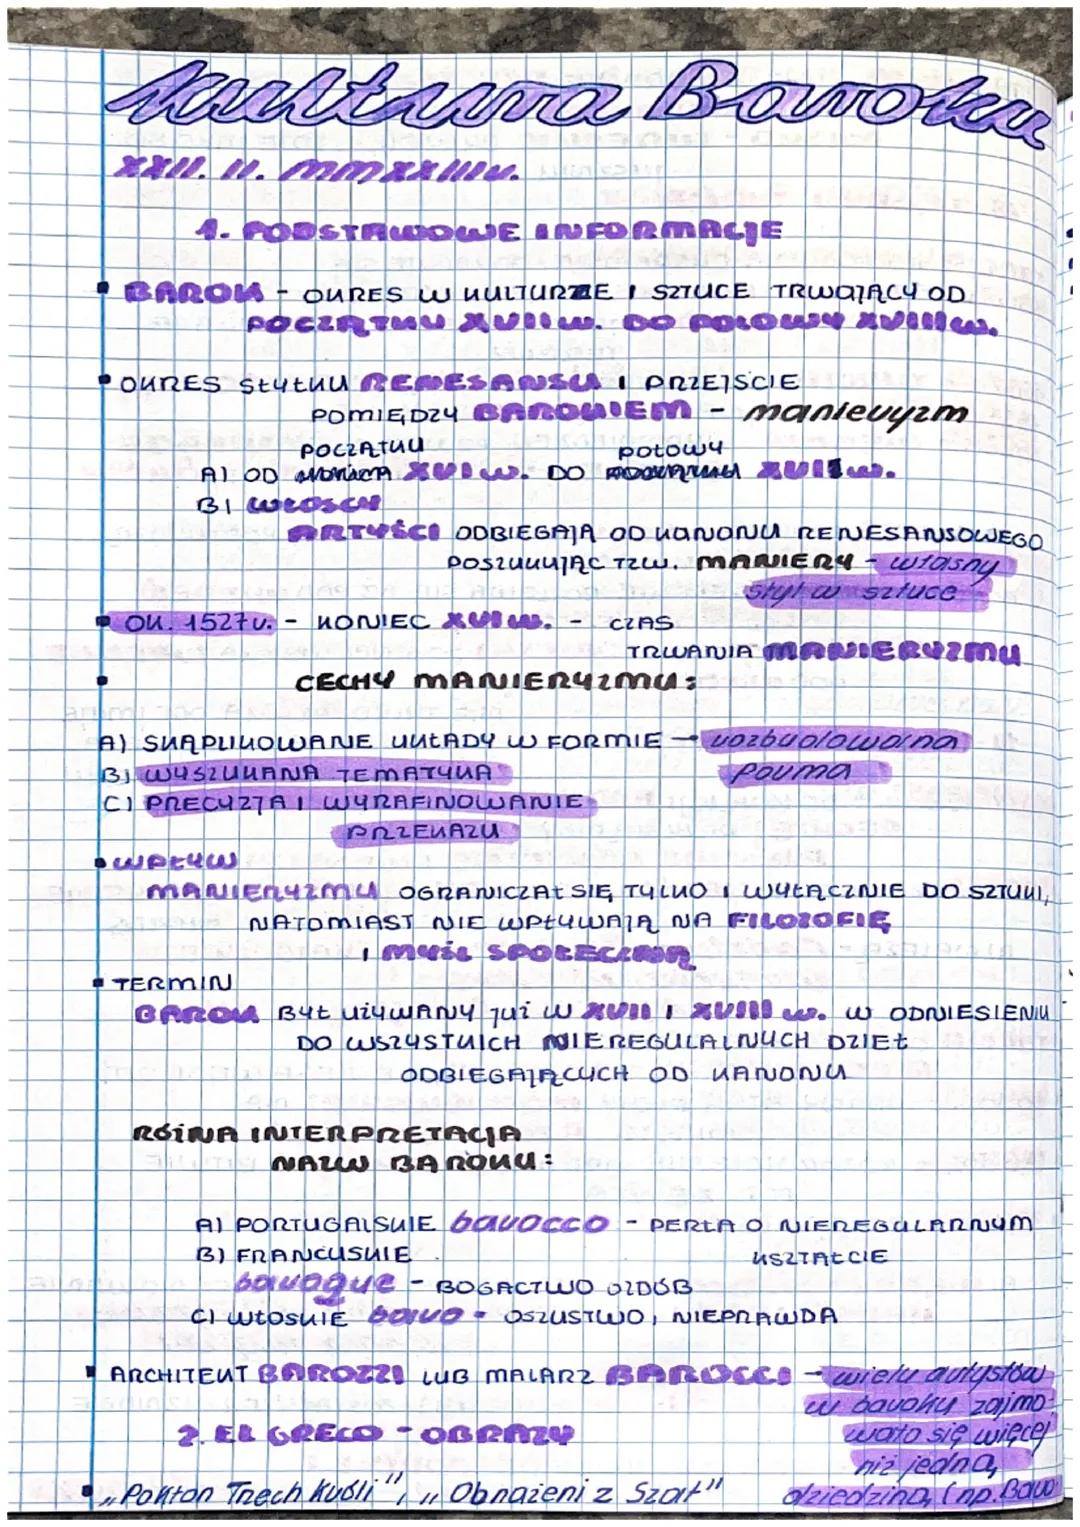 Kultura Baroku
XXII. II. MMXXIIIr.
1. PODSTAWOWE INFORMACJE
BAROK - OKRES W KULTURZE I SZTUCE TRWAJĄCY OD
POCZĄTKU XVII w. DO POŁOWY XVIII w.
OKRES STYŁKU RENESANSU I PRZEJŚCIE
POMIĘDZY BAROKIEM - manieryzm
POCZĄTKU połowy
A) OD XVI w. DO XVII w.
B) WŁOSCY
ARTYŚCI ODBIEGAJĄ OD KANONU RENESANSOWEGO
POSZUKUJĄC TZW. MANIERY - własny
styl w sztuce
OK. 1527r. - KONIEC XVI w. - CZAS
TRWANIA MANIERYZMU
CECHY MANIERYZMU:
A) SKĄPLIKOWANE UKŁADY W FORMIE → rozbudowana
B) WYSZUKANA TEMATYKA rouma
C) PRECYZJA I WYRAFINOWANIE
PRZEKAZU
WPŁYW
MANIERYZMU OGRANICZAŁ SIĘ TYLKO I WYŁĄCZNIE DO SZTUKI,
NATOMIAST NIE WPŁYWAJĄ NA FILOZOFIĘ
I MYŚL SPOŁECZNĄ
TERMIN
BAROK BYŁ UŻYWANY JUŻ W XVII I XVIII w. W ODNIESIENIU
DO WSZYSTKICH NIEREGULALNYCH DZIEŁ
ODBIEGAJĄCYCH OD KANONU
RÓŻNA INTERPRETACJA
NAZW BAROKU:
A) PORTUGALSKIE barocco - PERŁA O NIEREGULARNYM
B) FRANCUSKIE KSZTAŁCIE
baroque - BOGACTWO OZDÓB
C) WŁOSKIE baro - OSZUSTWO, NIEPRAWDA
ARCHITEKT BAROZZI LUB MALARZ BAROCCI - wielu artystów
w baroku zajmo-
2. EL GRECO - OBRAZY wało się więcej
niż jedną
"Pokłon Trzech Króli", "Obnażeni z Szat" dziedziną (np. Baro